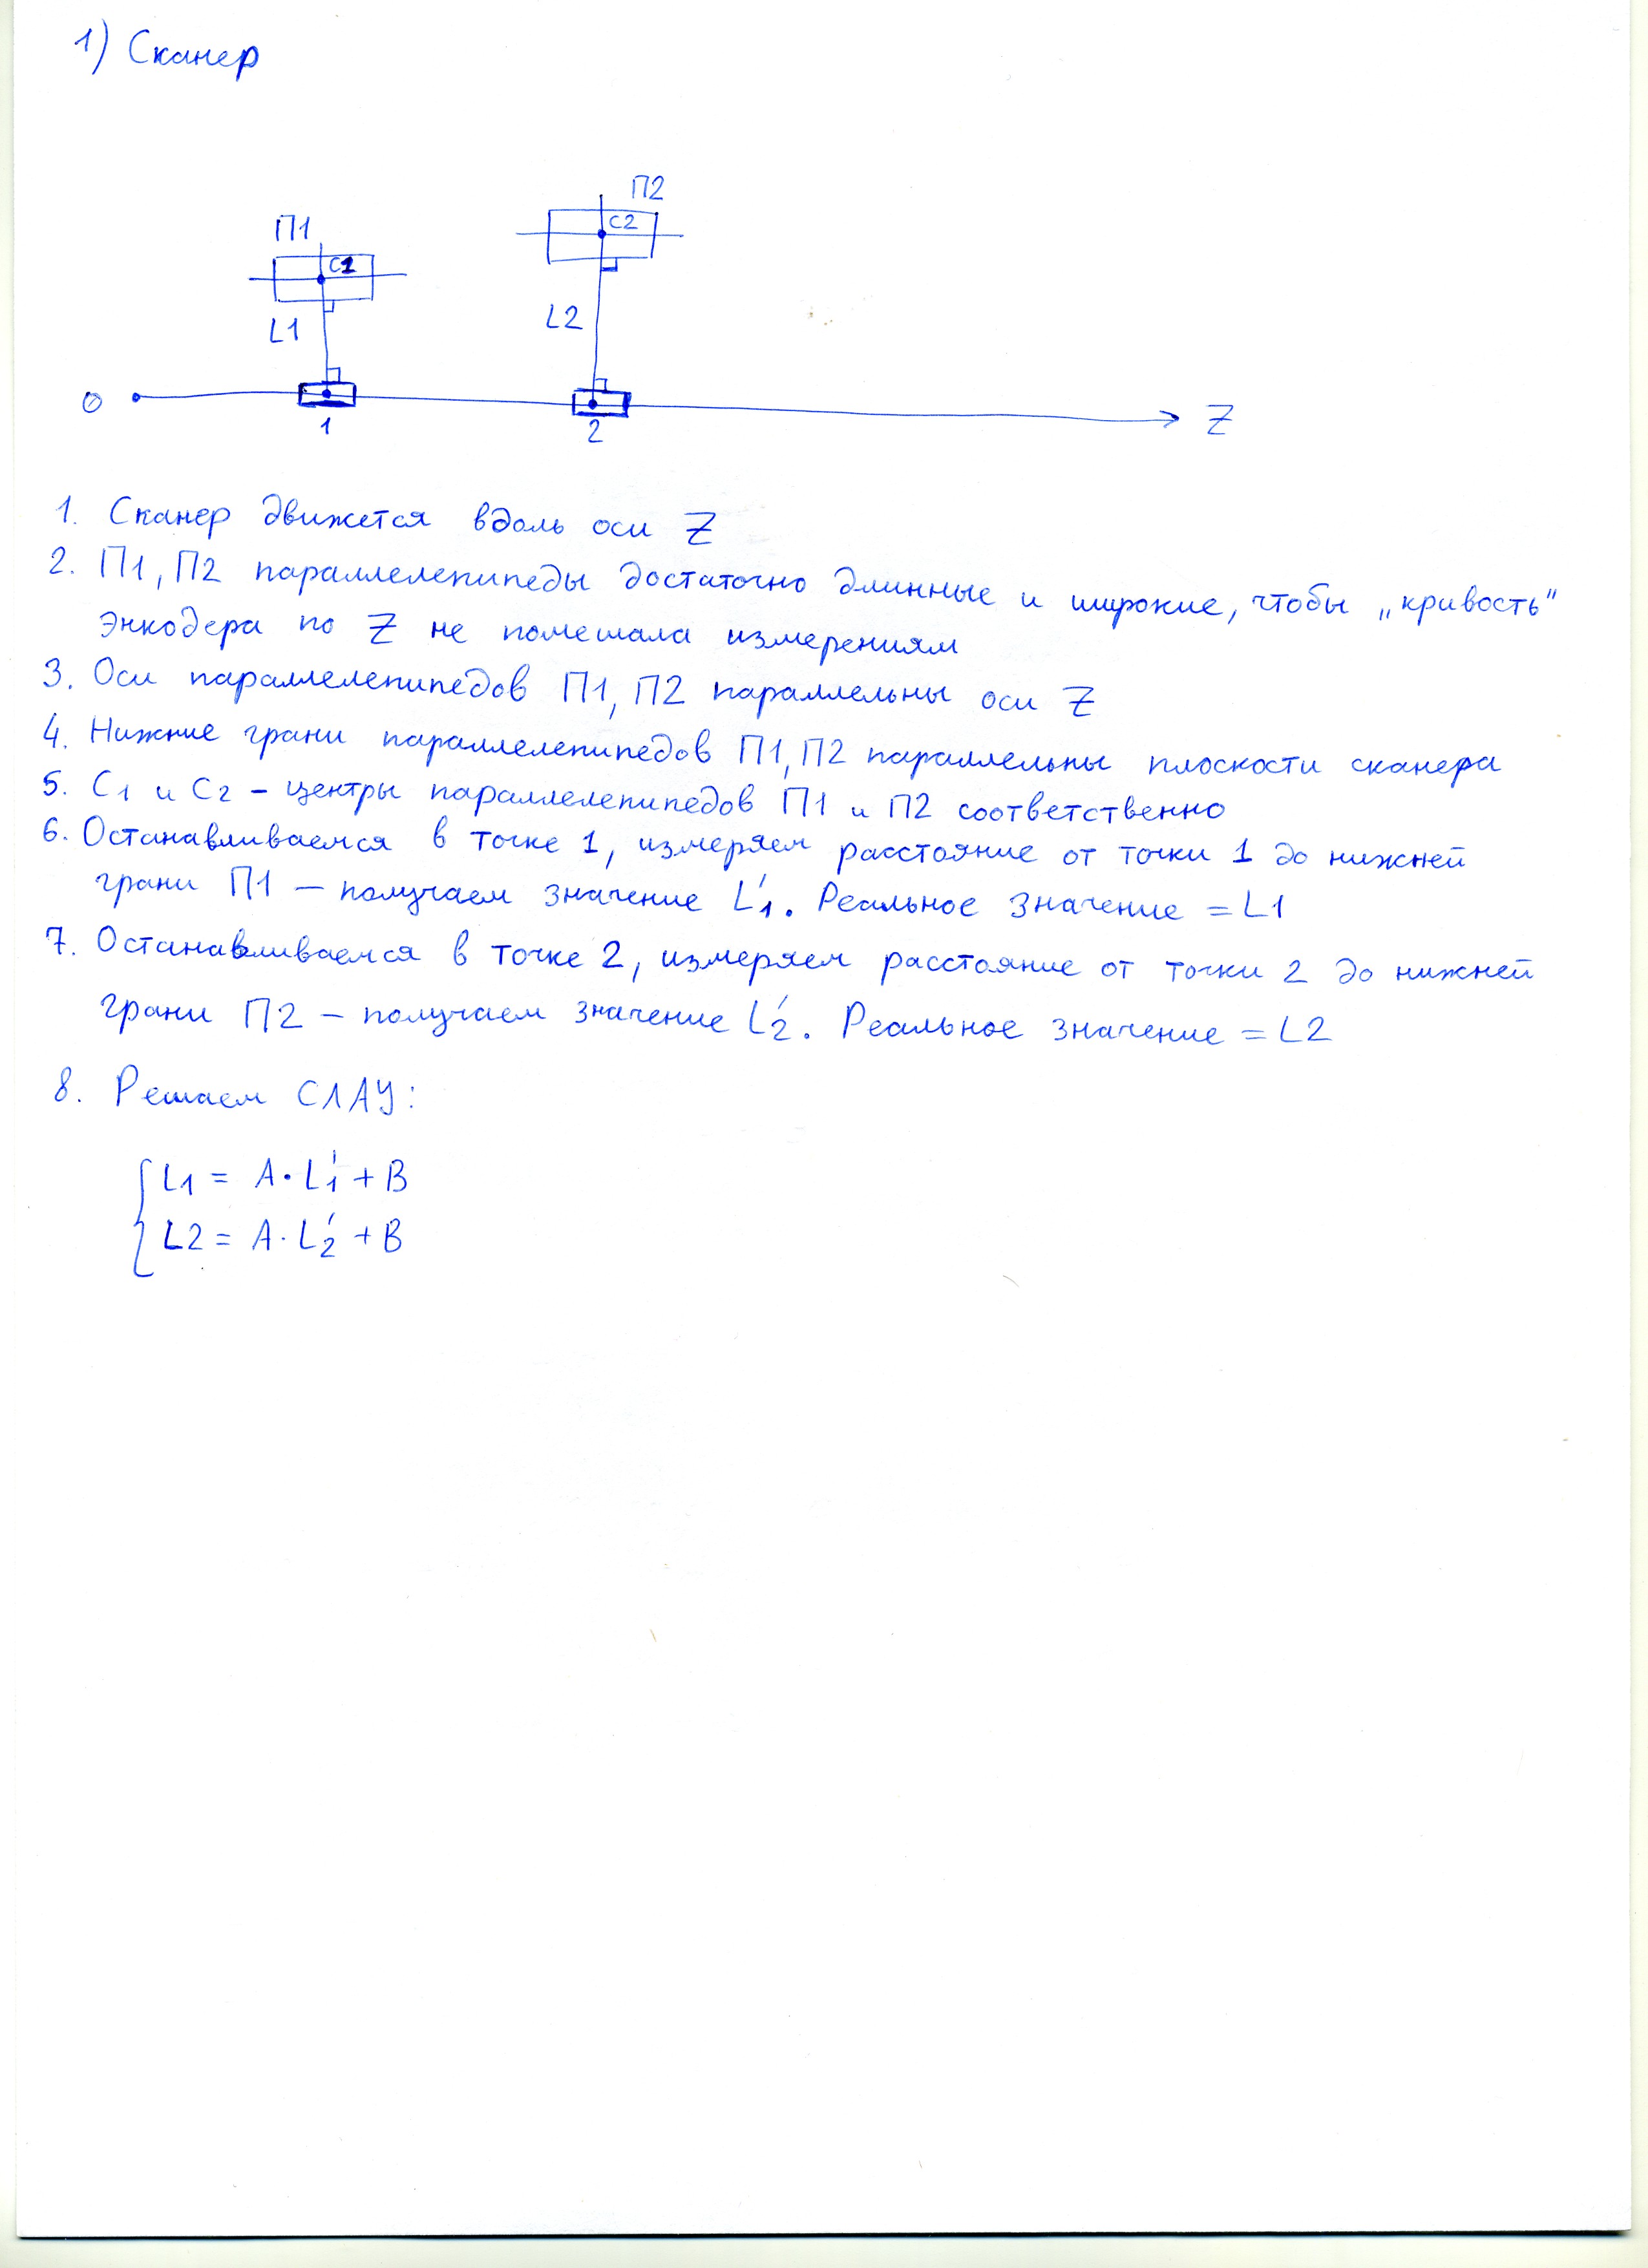 1) Сканер
П2
C2
П1
C1
L2
L1
0
Z
1
2
1. Сканер движется вдоль оси Z
2. П1, П2 параллелепипеды достаточно длинные и широкие, чтобы „кривость"
энкодера по Z не помешала измерениям
3. Оси параллелепипедов П1, П2 параллельны оси Z
4. Нижние грани параллелепипедов П1, П2 параллельны плоскости сканера
5. C1 и C2 – центры параллелепипедов П1 и П2 соответственно
6. Останавливаемся в точке 1, измеряем расстояние от точки 1 до нижней
грани П1 – получаем значение L'1. Реальное значение = L1
7. Останавливаемся в точке 2, измеряем расстояние от точки 2 до нижней
грани П2 – получаем значение L'2. Реальное значение = L2
8. Решаем СЛАУ:
L1 = A·L'1 + B
L2 = A·L'2 + B